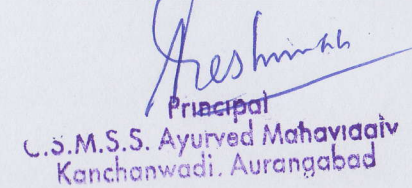 Principal
C.S.M.S.S. Ayurved Mahavidalv
Kanchanwadi, Aurangabad